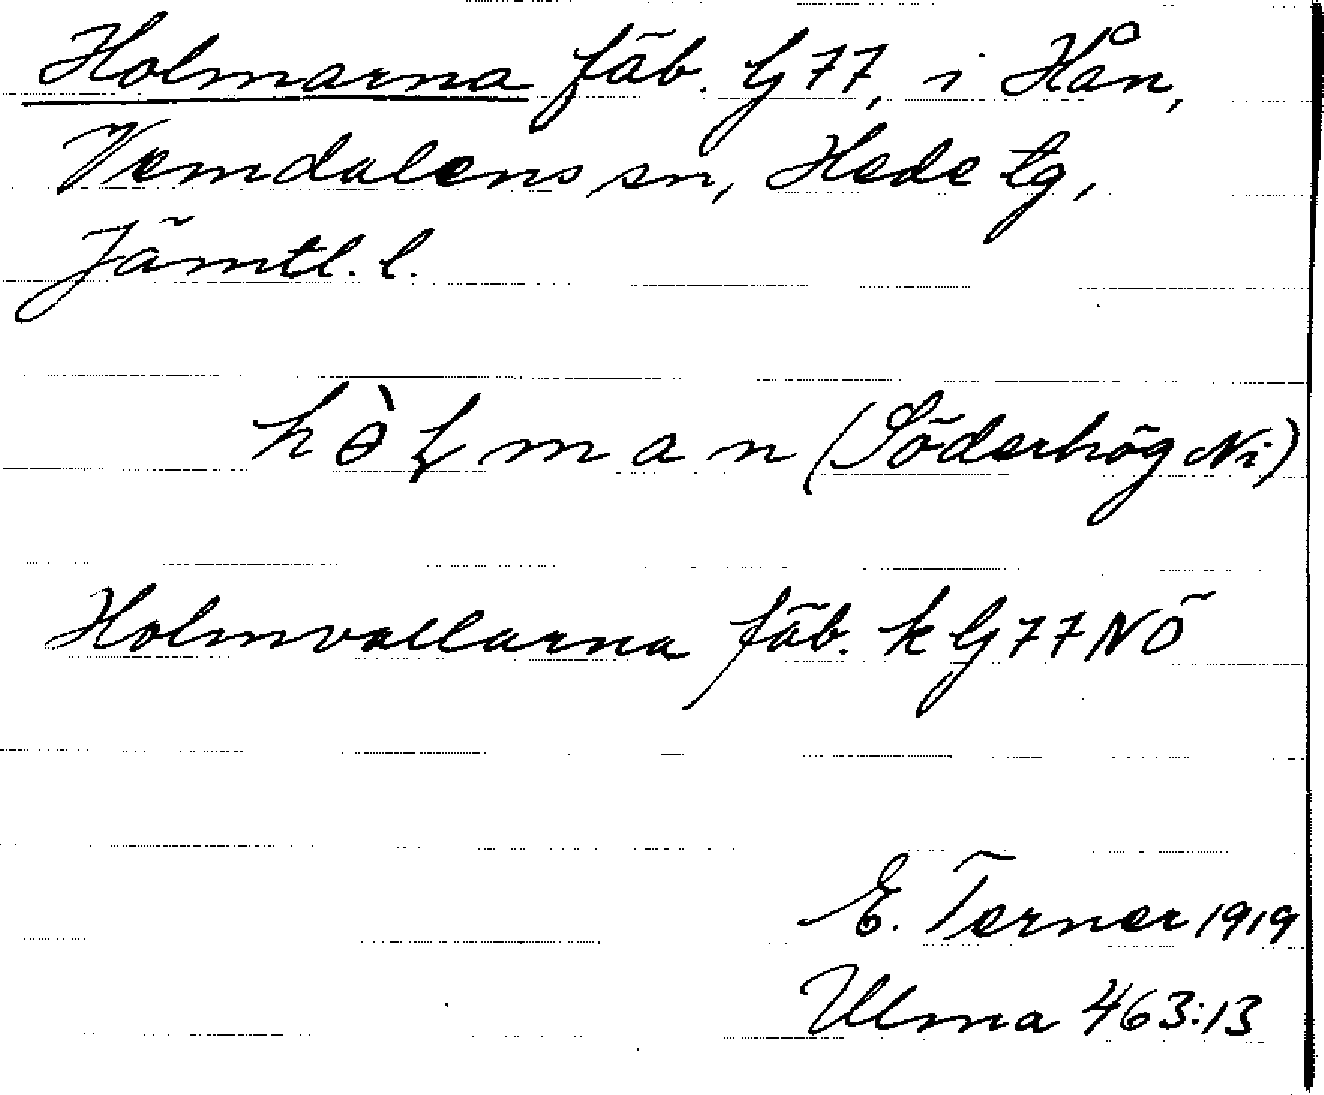 Holmarna fäb. G 77, i Hån,
Vemdalens sn, Hede tg,
Jämtl. l.
hɵ̀ɫman (Söderhög Ni)
Holmvallarna fäb. k G 77 NÖ
E. Terner 1919
Ulma 463:13